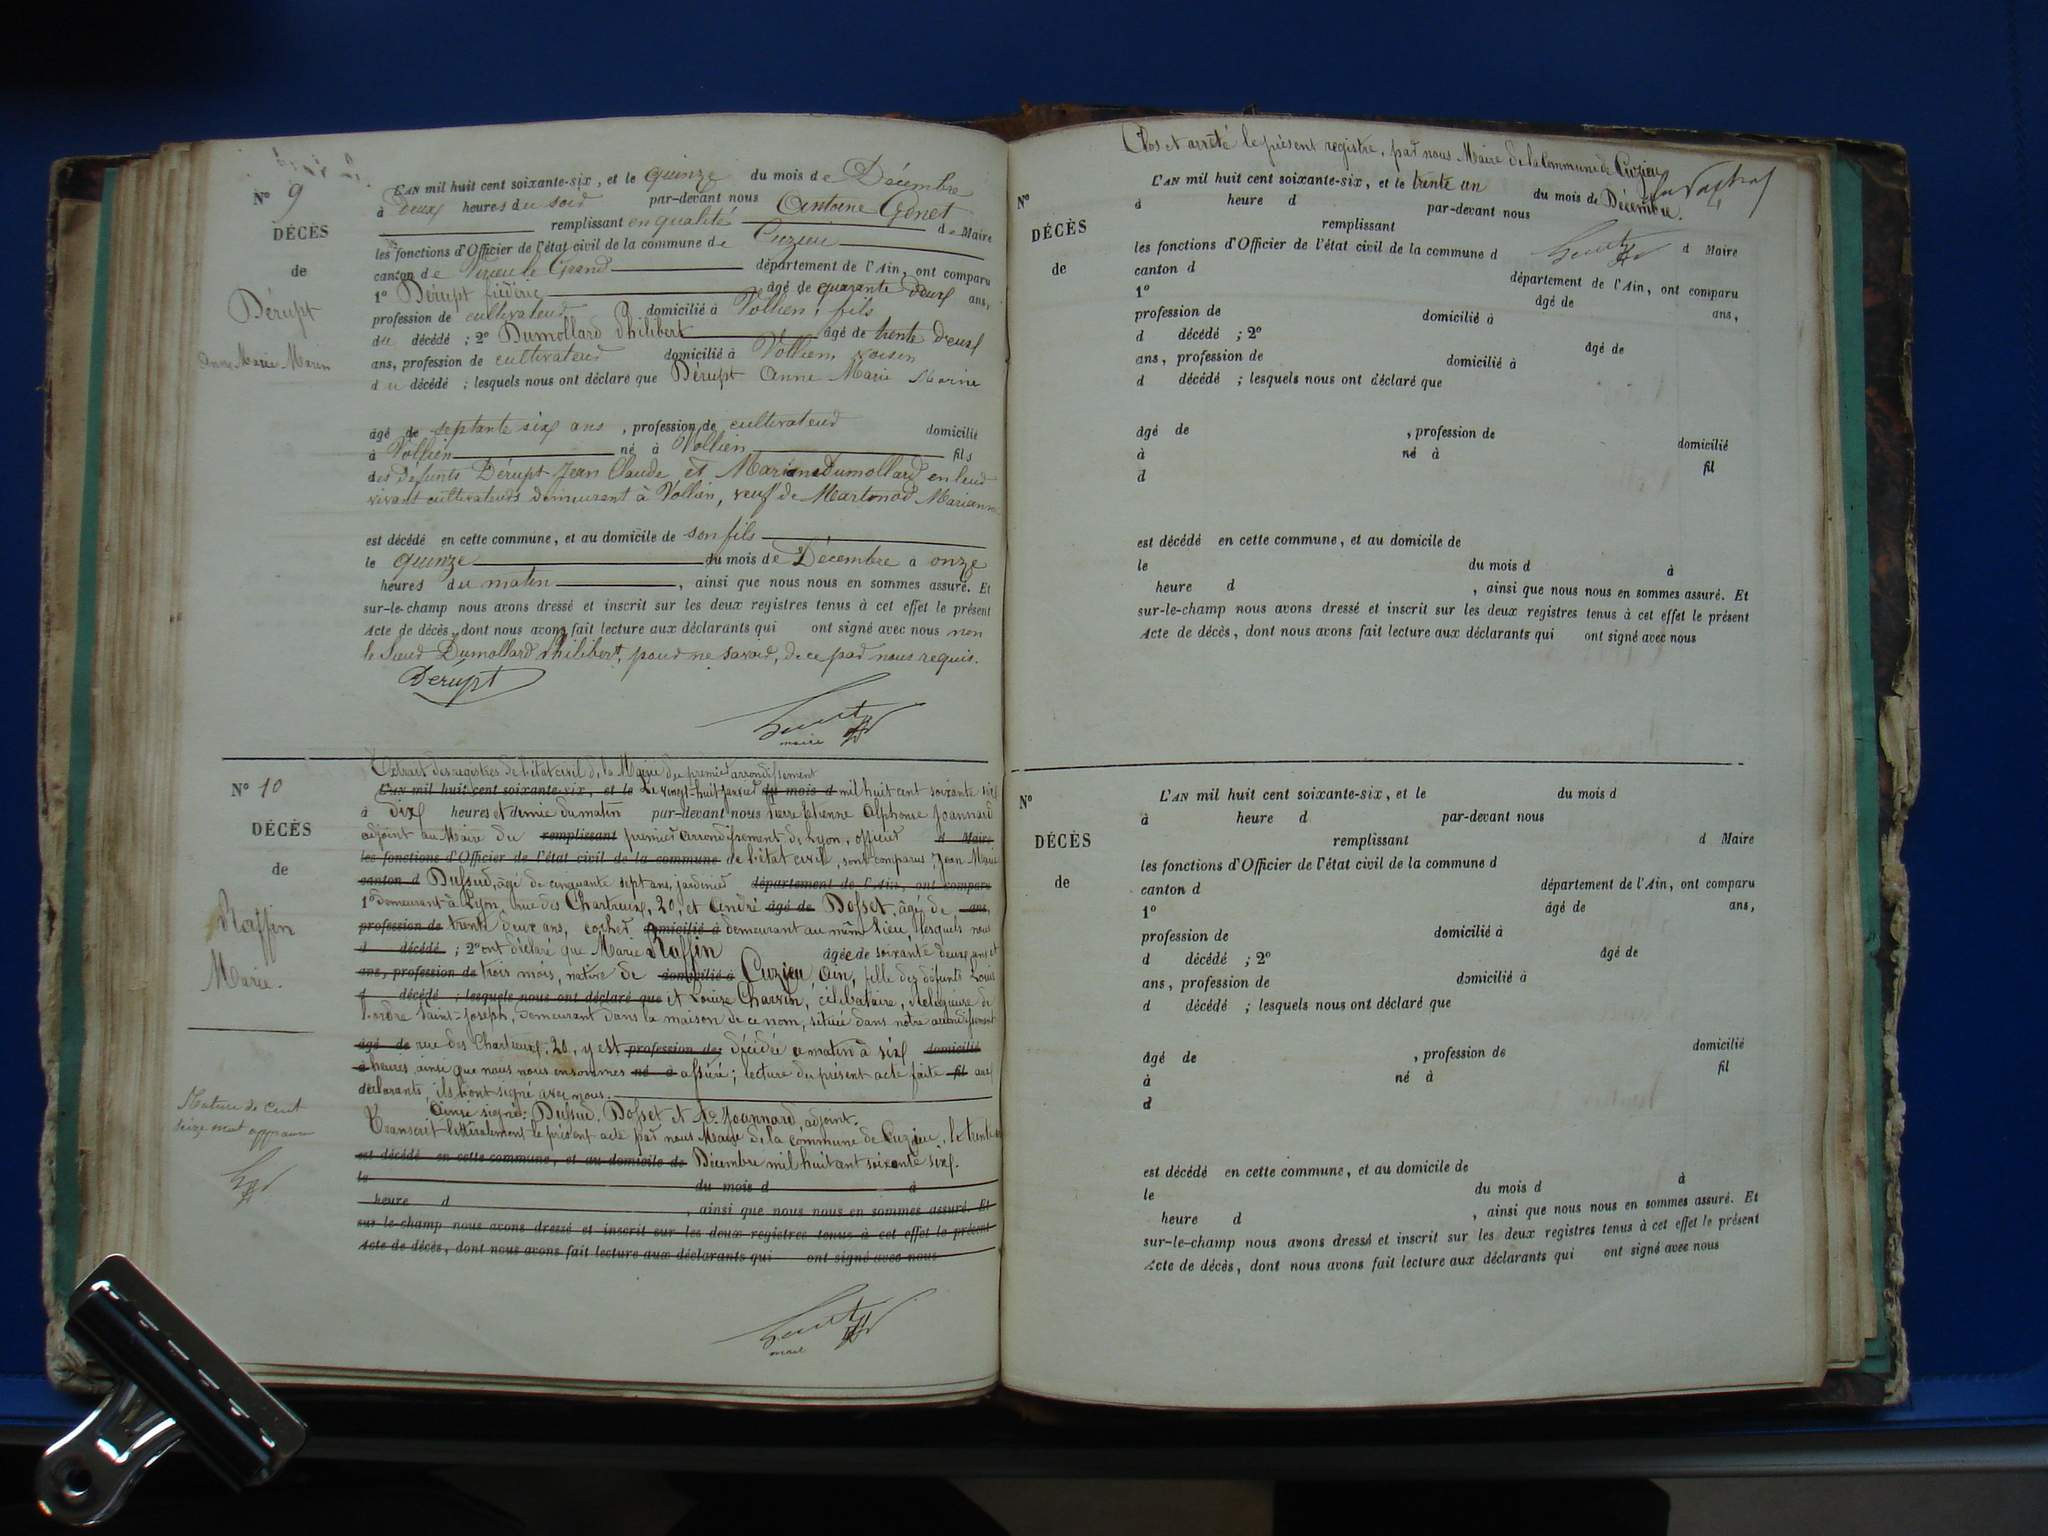 N° 9
DÉCÈS
de
Dérupt
Anne Marie Marin
L'AN mil huit cent soixante-six, et le quinze du mois de Décembre
à deux heures du soir par-devant nous Antoine Genet
remplissant en qualité de Maire
les fonctions d'Officier de l'état civil de la commune de Cuzieu
canton de Virieu le Grand département de l'Ain, ont comparu
1° Dérupt frédéric âgé de quarante deux ans,
profession de cultivateur domicilié à Vollien, fils
du décédé ; 2° Dumollard Philibert âgé de trente deux
ans, profession de cultivateur domicilié à Vollien, voisin
du décédé ; lesquels nous ont déclaré que Dérupt Anne Marie Marine
âgé de septante six ans , profession de cultivateur domicilié
à Vollien né à Vollien fils
des défunts Dérupt Jean Claude et Marianne Dumollard en leur
vivant cultivateurs demeurant à Vollien, veuf de Martinod Marianne
est décédé en cette commune, et au domicile de son fils
le quinze du mois de Décembre à onze
heures du matin , ainsi que nous nous en sommes assuré. Et
sur-le-champ nous avons dressé et inscrit sur les deux registres tenus à cet effet le présent
Acte de décès, dont nous avons fait lecture aux déclarants qui ont signé avec nous non
le Sieur Dumollard Philibert, pour ne savoir, de ce par nous requis.
Derupt
maire
N° 10
DÉCÈS
de
Raffin
Marie.
Extrait des registres de l'état civil de la Mairie du premier arrondissement
L'AN mil huit cent soixante-six, et le Le vingt-huit janvier du mois d mil huit cent soixante six
à dix heures et demie du matin par-devant nous Pierre Etienne Alphonse Joannard
adjoint au Maire du remplissant premier arrondissement de Lyon, officier d Maire
les fonctions d'Officier de l'état civil de la commune de l'état civil, sont comparus, Jean Marie
canton d Dufour, âgé de cinquante sept ans, jardinier département de l'Ain, ont comparu
1° demeurant à Lyon, rue des Chartreux, 20, et André âgé de Dosset, âgé de ans,
profession de trente deux ans, cocher domicilié à demeurant au même lieu, lesquels nous
d décédé ; 2° ont déclaré que Marie Raffin âgée de soixante deux ans et
ans, profession de trois mois, native de domicilié à Cuzieu, Ain, fille des défunts Louis
d décédé ; lesquels nous ont déclaré que et Louise Charvin, célibataire, Religieuse de
l'ordre Saint-Joseph, demeurant dans la maison de ce nom, située dans notre arrondissement
âgé de rue des Chartreux, 20, y est profession de décédée ce matin à six domicilié
à heures, ainsi que nous nous en sommes né à assuré ; lecture du présent acte faite fil aux
déclarants, ils l'ont signé avec nous.
Ainsi signé: Dufour, Dosset et Joannard, adjoint.
Transcrit littéralement le présent acte par nous Maire de la commune de Cuzieu, le trente
est décédé en cette commune, et au domicile de Décembre mil huit cent soixante six.
le du mois d à
heure d , ainsi que nous nous en sommes assuré. Et
sur-le-champ nous avons dressé et inscrit sur les deux registres tenus à cet effet le présent
Acte de décès, dont nous avons fait lecture aux déclarants qui ont signé avec nous
Rature de cent
seize mot approuvé
Clos et arrêté le présent registre, par nous Maire de la Commune de Cuzieu
N°
DÉCÈS
de
L'AN mil huit cent soixante-six, et le trente un du mois de Décembre.
à heure d par-devant nous
remplissant d Maire
les fonctions d'Officier de l'état civil de la commune d
canton d département de l'Ain, ont comparu
1° âgé de ans,
profession de domicilié à
d décédé ; 2° âgé de
ans, profession de domicilié à
d décédé ; lesquels nous ont déclaré que
âgé de , profession de domicilié
à né à fil
d
est décédé en cette commune, et au domicile de
le du mois d à
heure d , ainsi que nous nous en sommes assuré. Et
sur-le-champ nous avons dressé et inscrit sur les deux registres tenus à cet effet le présent
Acte de décès, dont nous avons fait lecture aux déclarants qui ont signé avec nous
N°
DÉCÈS
de
L'AN mil huit cent soixante-six, et le du mois d
à heure d par-devant nous
remplissant d Maire
les fonctions d'Officier de l'état civil de la commune d
canton d département de l'Ain, ont comparu
1° âgé de ans,
profession de domicilié à
d décédé ; 2° âgé de
ans, profession de domicilié à
d décédé ; lesquels nous ont déclaré que
âgé de , profession de domicilié
à né à fil
d
est décédé en cette commune, et au domicile de
le du mois d à
heure d , ainsi que nous nous en sommes assuré. Et
sur-le-champ nous avons dressé et inscrit sur les deux registres tenus à cet effet le présent
Acte de décès, dont nous avons fait lecture aux déclarants qui ont signé avec nous